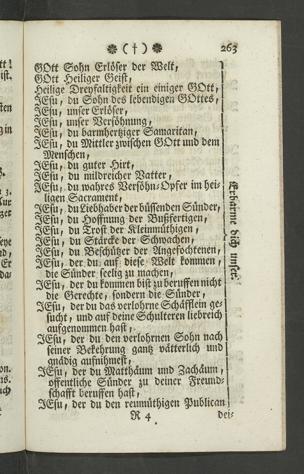 ❉ ( † ) ❉ 263
GOtt Sohn Erlöser der Welt,
GOtt Heiliger Geist,
Heilige Dreyfaltigkeit ein einiger GOtt,
JEsu, du Sohn des lebendigen GOttes,
JEsu, unser Erlöser,
JEsu, unser Versöhnung,
JEsu, du barmhertziger Samaritan,
JEsu, du Mittler zwischen GOtt und dem
Menschen,
JEsu, du guter Hirt,
JEsu, du mildreicher Vatter,
JEsu, du wahres Versöhn-Opfer im hei-
ligen Sacrament,
JEsu, du Liebhaber der büssenden Sünder,
JEsu, du Hoffnung der Bußfertigen,
JEsu, du Trost der Kleinmüthigen,
JEsu, du Stärcke der Schwachen,
JEsu, du Beschützer der Angefochtenen,
JEsu, der du auf diese Welt kommen,
die Sünder seelig zu machen,
JEsu, der du kommen bist zu beruffen nicht
die Gerechte, sondern die Sünder,
JEsu, der du das verlohrne Schäfflein ge-
sucht, und auf deine Schulteren liebreich
aufgenommen hast,
JEsu, der du den verlohrnen Sohn nach
seiner Bekehrung gantz vätterlich und
gnädig aufnihmest,
JEsu, der du Matthäum und Zachäum,
offentliche Sünder zu deiner Freund-
schafft beruffen hast,
JEsu, der du den reumüthigen Publican
R 4 dei-
Erbarme dich unser.